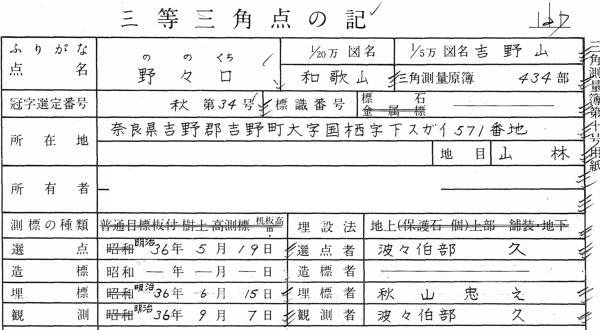 三等三角点の記
ふりがな ののくち 1/20万 図名 1/5万 図名 吉野山
点名 野々口 和歌山 三角測量原簿 434部
冠字選定番号 秋 第34号 標識番号 標石 金属標
所在地 奈良県吉野郡吉野町大字国栖字下スガイ571番地
地目 山林
所有者 —
測標の種類 普通目標板付樹上高測標 机板高 m 埋設法 地上(保護石 個)上部 舗装・地下
選点 昭和 明治 36年 5月 19日 選点者 波々伯部 久
造標 昭和 —年 —月 —日 造標者
埋標 昭和 明治 36年 6月 15日 埋標者 秋山忠之
観測 昭和 明治 36年 9月 7日 観測者 波々伯部 久
三角測量簿第十号用紙